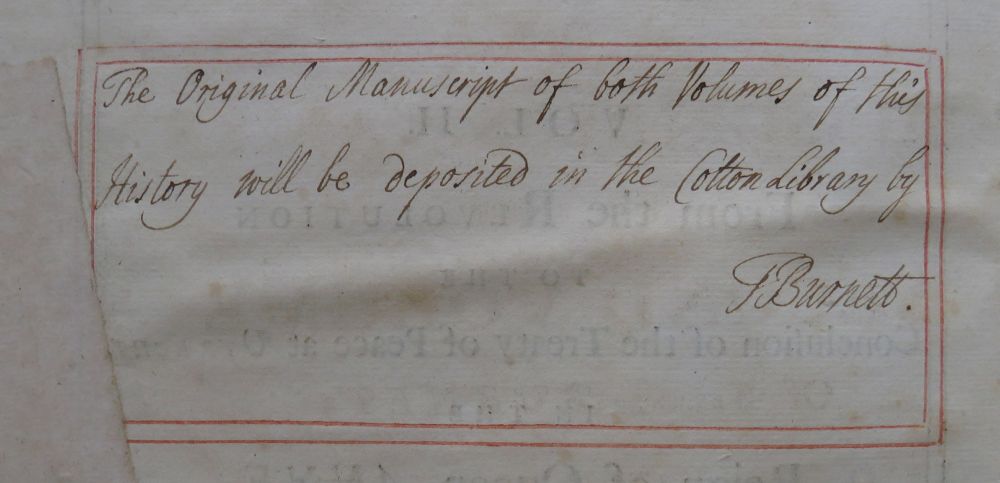 The Original Manuscript of both Volumes of this
History will be deposited in the Cotton Library by
TBurnett.
VOL. II.
From the REVOLUTION
TO THE
Conclusion of the Treaty of Peace at
IN THE
Reign of Queen ANNE